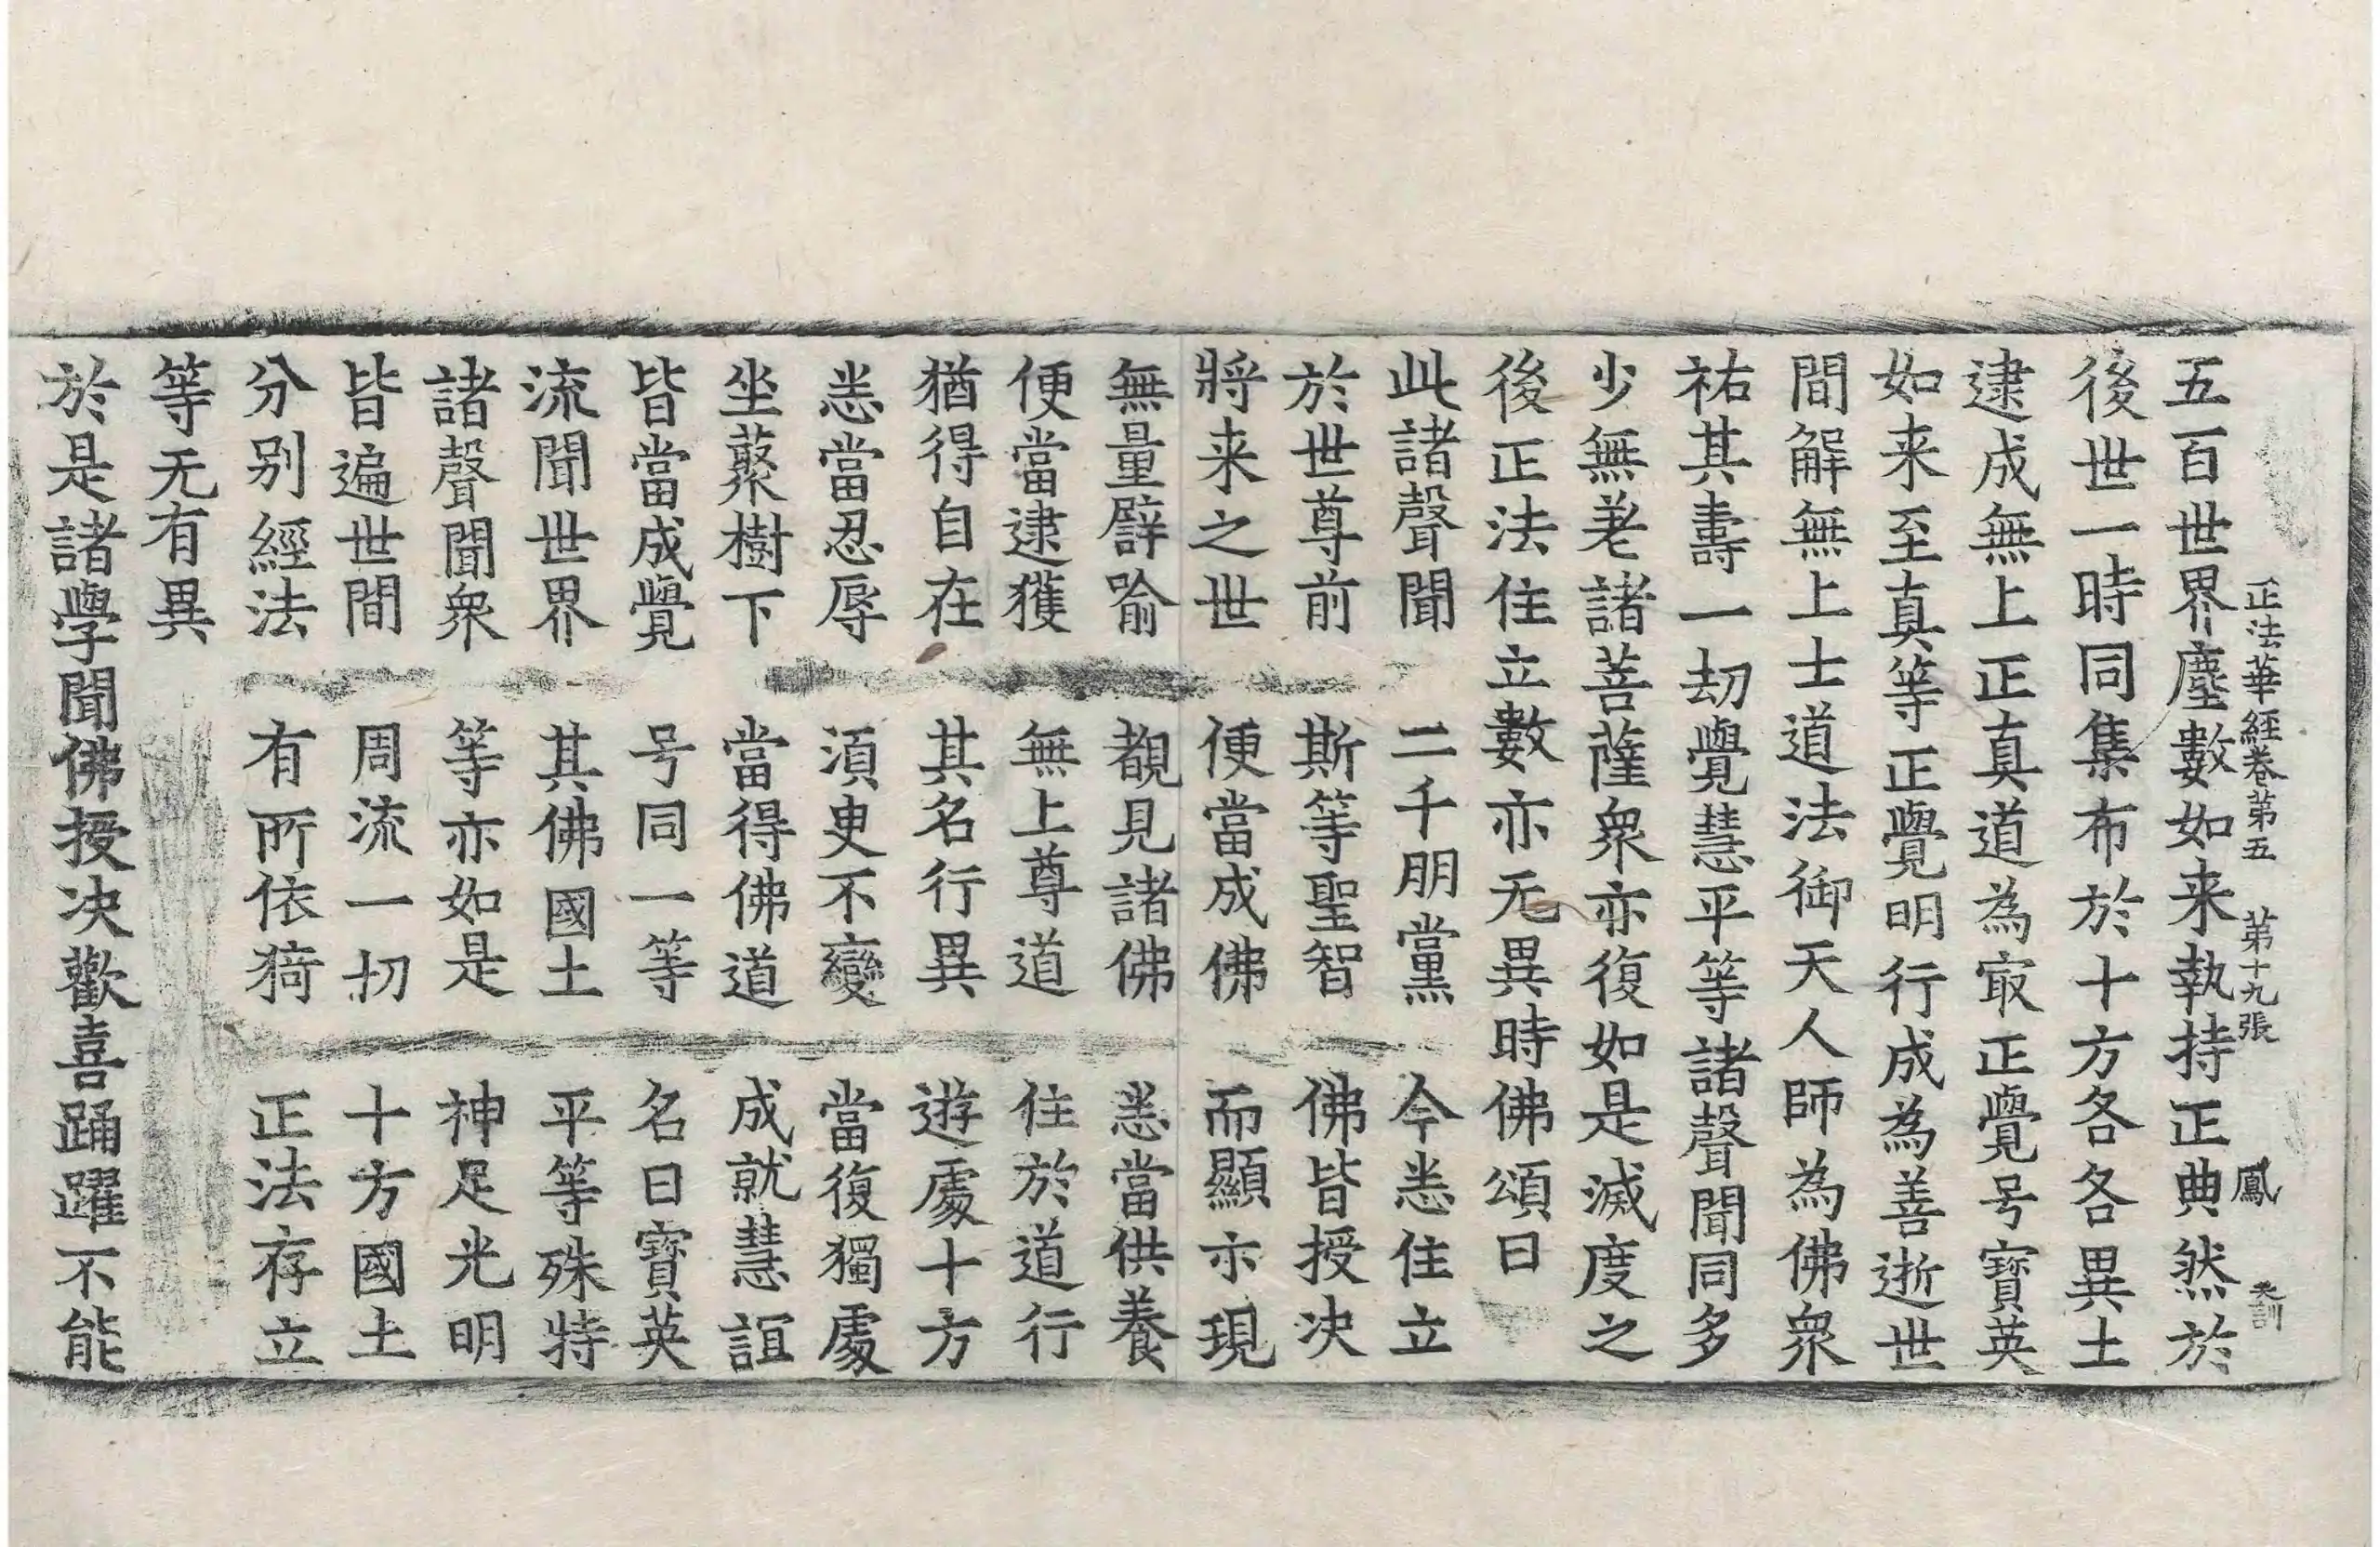 正法華經卷第五　第十九張　鳳
五百世界塵數如来執持正典然於
後世一時同集布於十方各各異土
逮成無上正真道為㝡正覺号寶英
如来至真等正覺明行成為善逝世
間解無上士道法御天人師為佛衆
祐其壽一劫覺慧平等諸聲聞同多
少無老諸菩薩衆亦復如是滅度之
後正法住立數亦无異時佛頌曰
此諸聲聞　二千朋黨　今悉住立
於世尊前　斯等聖智　佛皆授决
將来之世　便當成佛　而顯示現
無量譬喻　覩見諸佛　悉當供養
便當逮獲　無上尊道　住於道行
猶得自在　其名行異　遊處十方
悉當忍辱　湏臾不變　當復獨處
坐藂樹下　當得佛道　成就慧誼
皆當成覺　号同一等　名曰寶英
流聞世界　其佛國土　平等殊特
諸聲聞衆　等亦如是　神足光明
皆遍世間　周流一切　十方國土
分别經法　有所依猗　正法存立
等无有異
於是諸學聞佛授决歡喜踊躍不能